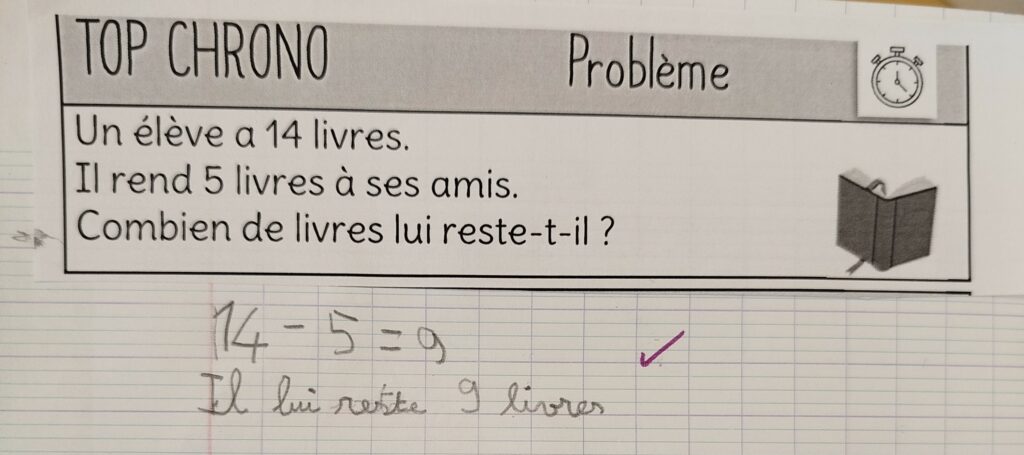 TOP CHRONO Problème
Un élève a 14 livres.
Il rend 5 livres à ses amis.
Combien de livres lui reste-t-il ?
14 - 5 = 9
Il lui reste 9 livres